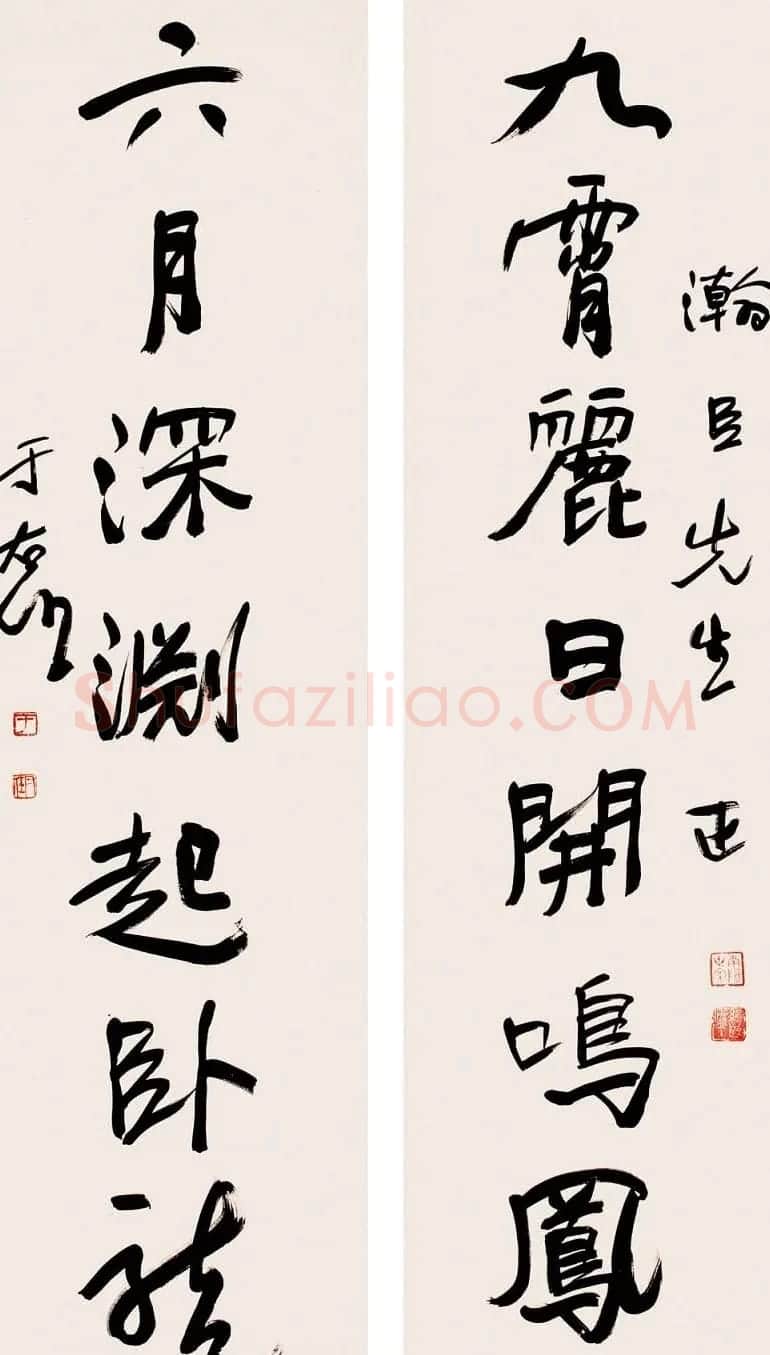 瀚臣先生正
九霄麗日開鳴鳳
六月深淵起卧龍
于右任
Shufaziliao.COM